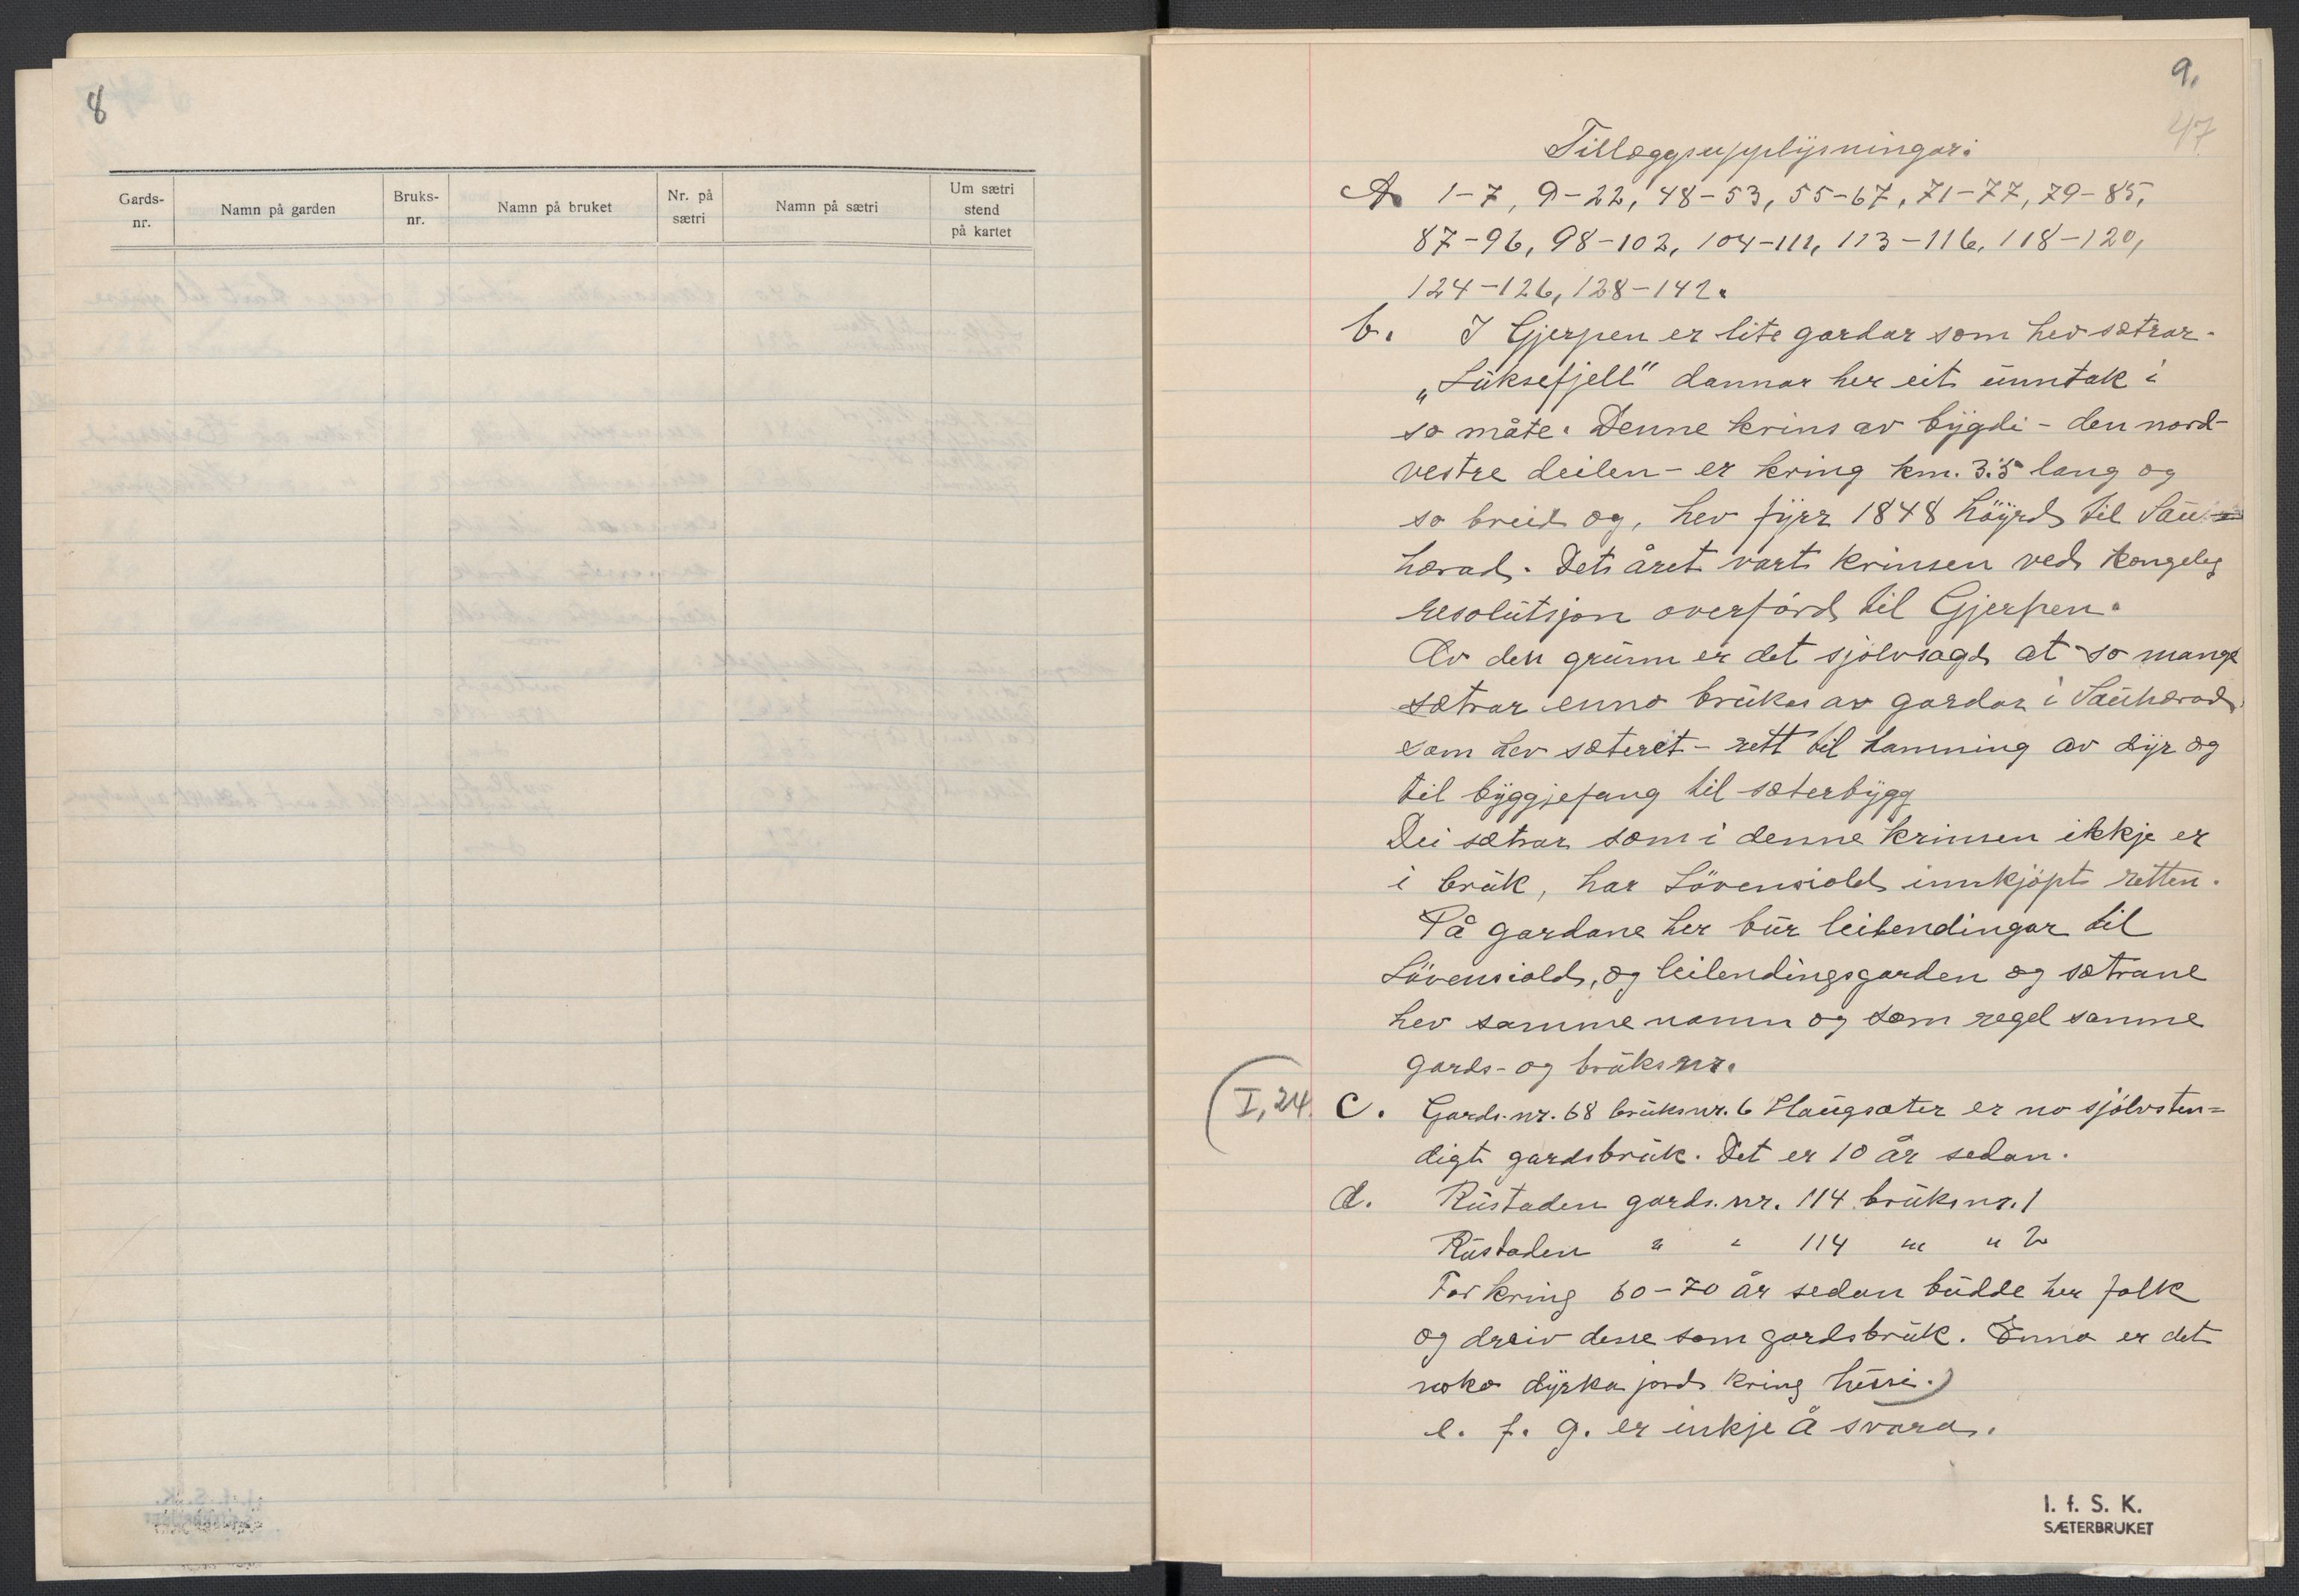 8
Gards-
nr.
Namn på garden
Bruks-
nr.
Namn på bruket
Nr. på
sætri
Namn på sætri
Um sætri
stend
på kartet
9.
47
Tilleggsupplysningar:
A 1-7, 9-22, 48-53, 55-67, 71-77, 79-85,
87-96, 98-102, 104-111, 113-116, 118-120,
124-126, 128-142.
b. I Gjerpen er lite gardar som hev sætrar.
„Luksefjell" dannar her eit unntak i
so måte. Denne krins av bygdi - den nord-
vestre deilen - er kring km. 3.5 lang og
so breid og, hev fyrr 1848 höyrd til Sau-
herad. Det året vart krinsen ved kongeleg
resolutsjon overförd til Gjerpen.
Av den grunn er det sjölvsagd at so mange
sætrar enno brukas av gardar i Sauherad
som hev sæteret - rett til hamning av dyr og
til byggjefang til sæterbygg
Dei sætrar som i denne krinsen ikkje er
i bruk, har Lövenskiold innkjöpt retten.
På gardane her bur leilendingar til
Lövenskiold, og leilendingsgarden og sætrane
hev samme namn og som regel samme
gards- og bruksnr.
I, 24. c. Gards.nr. 68 bruksnr. 6 Haugsæter er no sjölvsten=
digt gardsbruk. Det er 10 år sedan.
d. Rustaden gards.nr. 114 bruksnr. 1
Rustaden " " 114 " " 2
For kring 60-70 år sedan budde her folk
og dreiv desse som gardsbruk. Enno er det
noko dyrka jord kring husi.)
e. f. g. er inkje å svara.
I. f. S. K.
SÆTERBRUKET